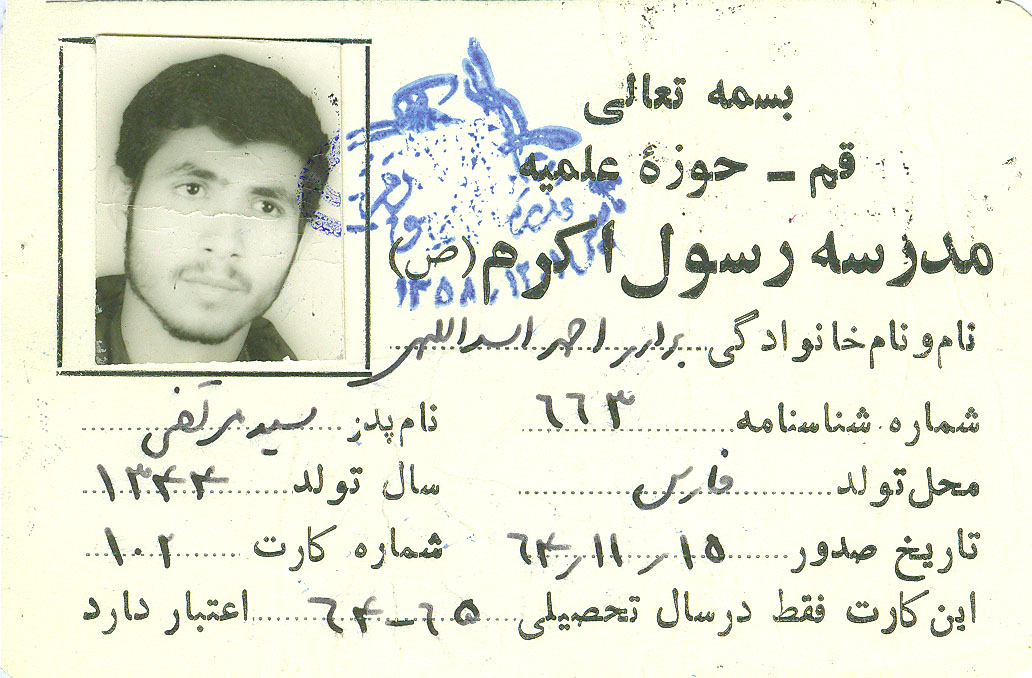 بسمه تعالی
قم - حوزهٔ علمیه
مدرسه رسول اکرم (ص)
نام و نام خانوادگی برادر احمد اسداللهی
شماره شناسنامه ۶۶۳ نام پدر سید مرتضی
محل تولد فارس سال تولد ۱۳۴۴
تاریخ صدور ۱۵/۱۱/۶۴ شماره کارت ۱۰۲
این کارت فقط در سال تحصیلی ۶۵-۶۴ اعتبار دارد
۱۳۵۸